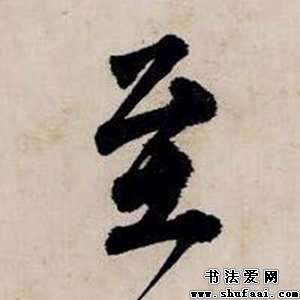 至
书法爱网
www.shufaai.com